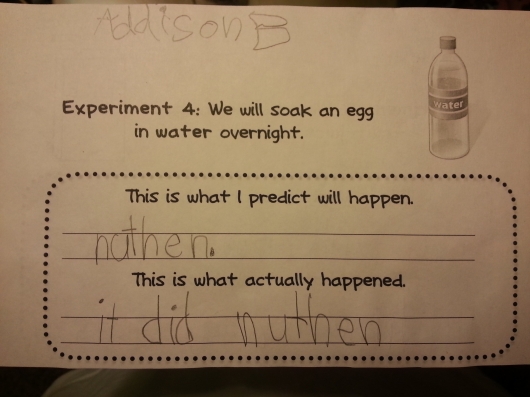 Addison B
Experiment 4: We will soak an egg
in water overnight.
water
This is what I predict will happen.
nuthen.
This is what actually happened.
it did nuthen